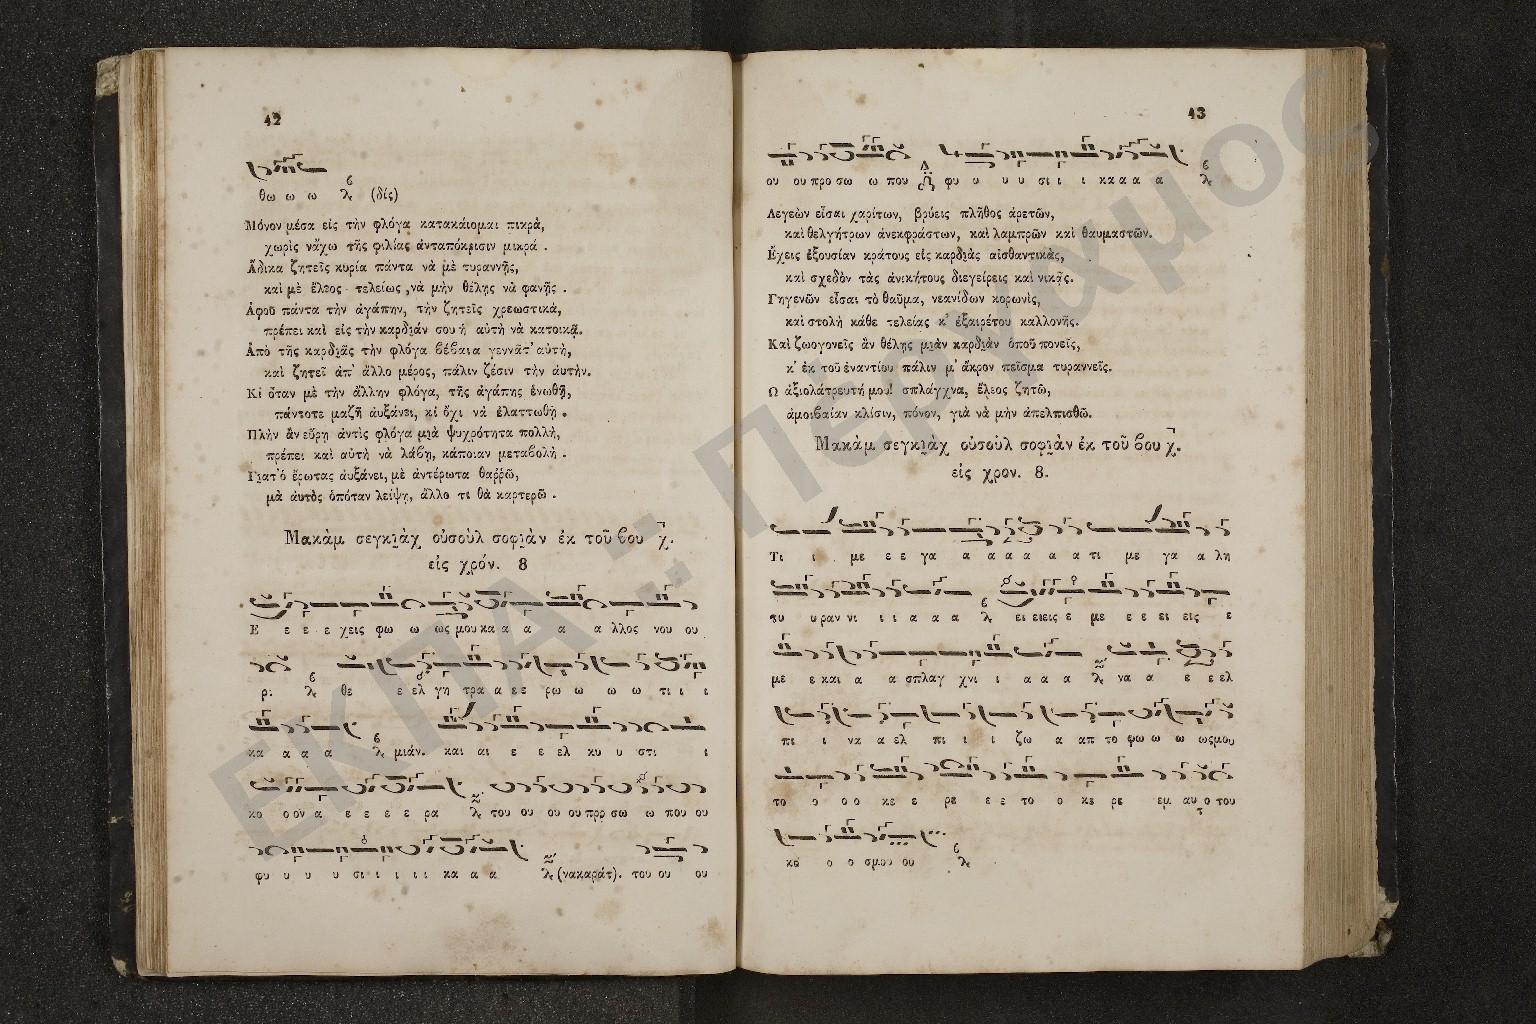 42
θω ω ω λ (δίς)
Μόνον μέσα εἰς τὴν φλόγα κατακάιομαι πικρὰ,
χωρὶς νἄχω τῆς φιλίας ἀνταπόκρισιν μικρά.
Ἄδικα ζητεῖς κυρία πάντα νὰ μὲ τυραννῇς,
καὶ μὲ ἔλεος τελείως, νὰ μὴν θέλῃς νὰ φανῇς.
Ἀφοῦ πάντα τὴν ἀγάπην, τὴν ζητεῖς χρεωστικά,
πρέπει καὶ εἰς τὴν καρδιάν σου ἡ αὐτὴ νὰ κατοικᾷ.
Ἀπὸ τῆς καρδιᾶς τὴν φλόγα βέβαια γεννᾶτ' αὐτὴ,
καὶ ζητεῖ ἀπ' ἄλλο μέρος, πάλιν ζέσιν τὴν αὐτήν.
Κὶ ὅταν μὲ τὴν ἄλλην φλόγα, τῆς ἀγάπης ἑνωθῇ,
πάντοτε μαζῆ αὐξάνει, κὶ ὄχι νὰ ἐλαττωθῇ.
Πλὴν ἂν εὕρῃ ἀντὶς φλόγα μιὰ ψυχρότητα πολλὴ,
πρέπει καὶ αὐτὴ νὰ λάβῃ, κάποιαν μεταβολὴ.
Γιατ' ὁ ἔρωτας αὐξάνει, μὲ ἀντέρωτα θαῤῥῶ,
μὰ αὐτὸς ὁπόταν λείψῃ, ἄλλο τι θὰ καρτερῶ.
Μακὰμ σεγκιὰχ οὐσοὺλ σοφιὰν ἐκ τοῦ βου χ.
εἰς χρόν. 8
Ε ε ε ε χεις φω ω ως μου κα α α α α λλος νου ου
ρ: λ θε ε ελ γη τρα α ε ε ρω ω ω ω τι ι ι
κα α α α λ μιάν. και αι ε ε ελ κυ υ στι ι
κο ο ον α ε ε ε ε ρα λ του ου ου ου προ σω ω που ου
φυ υ υ υ σι ι ι ι ι κα α α λ (νακαράτ). του ου ου
43
ου ου προ σω ω που φυ υ υ υ σι ι ι κα α α α λ
Λεγεὼν εἶσαι χαρίτων, βρύεις πλῆθος ἀρετῶν,
καὶ θελγήτρων ἀνεκφράστων, καὶ λαμπρῶν καὶ θαυμαστῶν.
Ἔχεις ἐξουσίαν κράτους εἰς καρδιὰς αἰσθαντικὰς,
καὶ σχεδὸν τὰς ἀνικήτους διεγείρεις καὶ νικᾷς.
Γηγενῶν εἶσαι τὸ θαῦμα, νεανίδων κορωνὶς,
καὶ στολὴ κάθε τελείας κ' ἐξαιρέτου καλλονῆς.
Καὶ ζωογονεῖς ἂν θέλῃς μιὰν καρδιὰν ὁποῦ πονεῖς,
κ' ἐκ τοῦ ἐναντίου πάλιν μ' ἄκρον πεῖσμα τυραννεῖς.
Ω ἀξιολάτρευτή μου! σπλάγχνα, ἔλεος ζητῶ,
ἀμοιβαίαν κλίσιν, πόνον, γιὰ νὰ μὴν ἀπελπισθῶ.
Μακὰμ σεγκιὰχ οὐσοὺλ σοφιὰν ἐκ τοῦ βου χ.
εἰς χρον. 8.
Τι ι με ε ε γα α α α α α τι με γα α λη
τυ υ ραν νι ι ι α α α λ ει ειεις ε με ε ε ει εις ε
με ε και α α σπλαγ χνι ι α α α λ να α ε ε ελ
πι ι να α ελ πι ι ι ζω α απ το φω ω ω ωςμου
το ο ο ο κε ε ρε ε ε το ο κε ρε εμ αυτο του
κο ο ο σμου ου λ